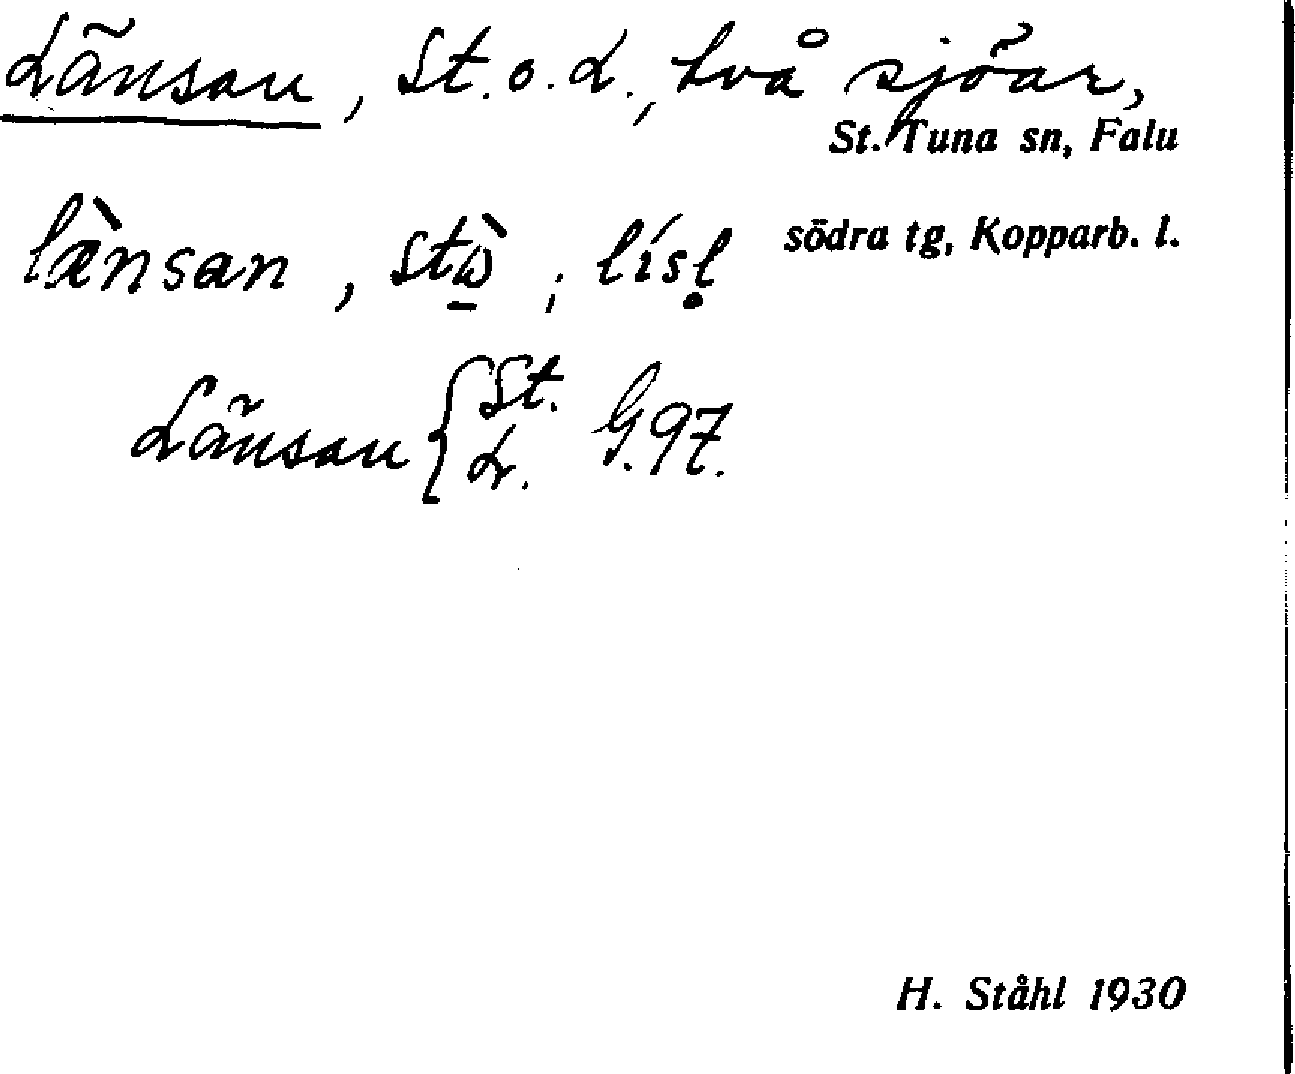 Länsan, St. o. L., två sjöar,
St. Tuna sn, Falu
södra tg, Kopparb. l.
lænsan, , lisl
Länsan { St. L. G. 97.
H. Ståhl 1930